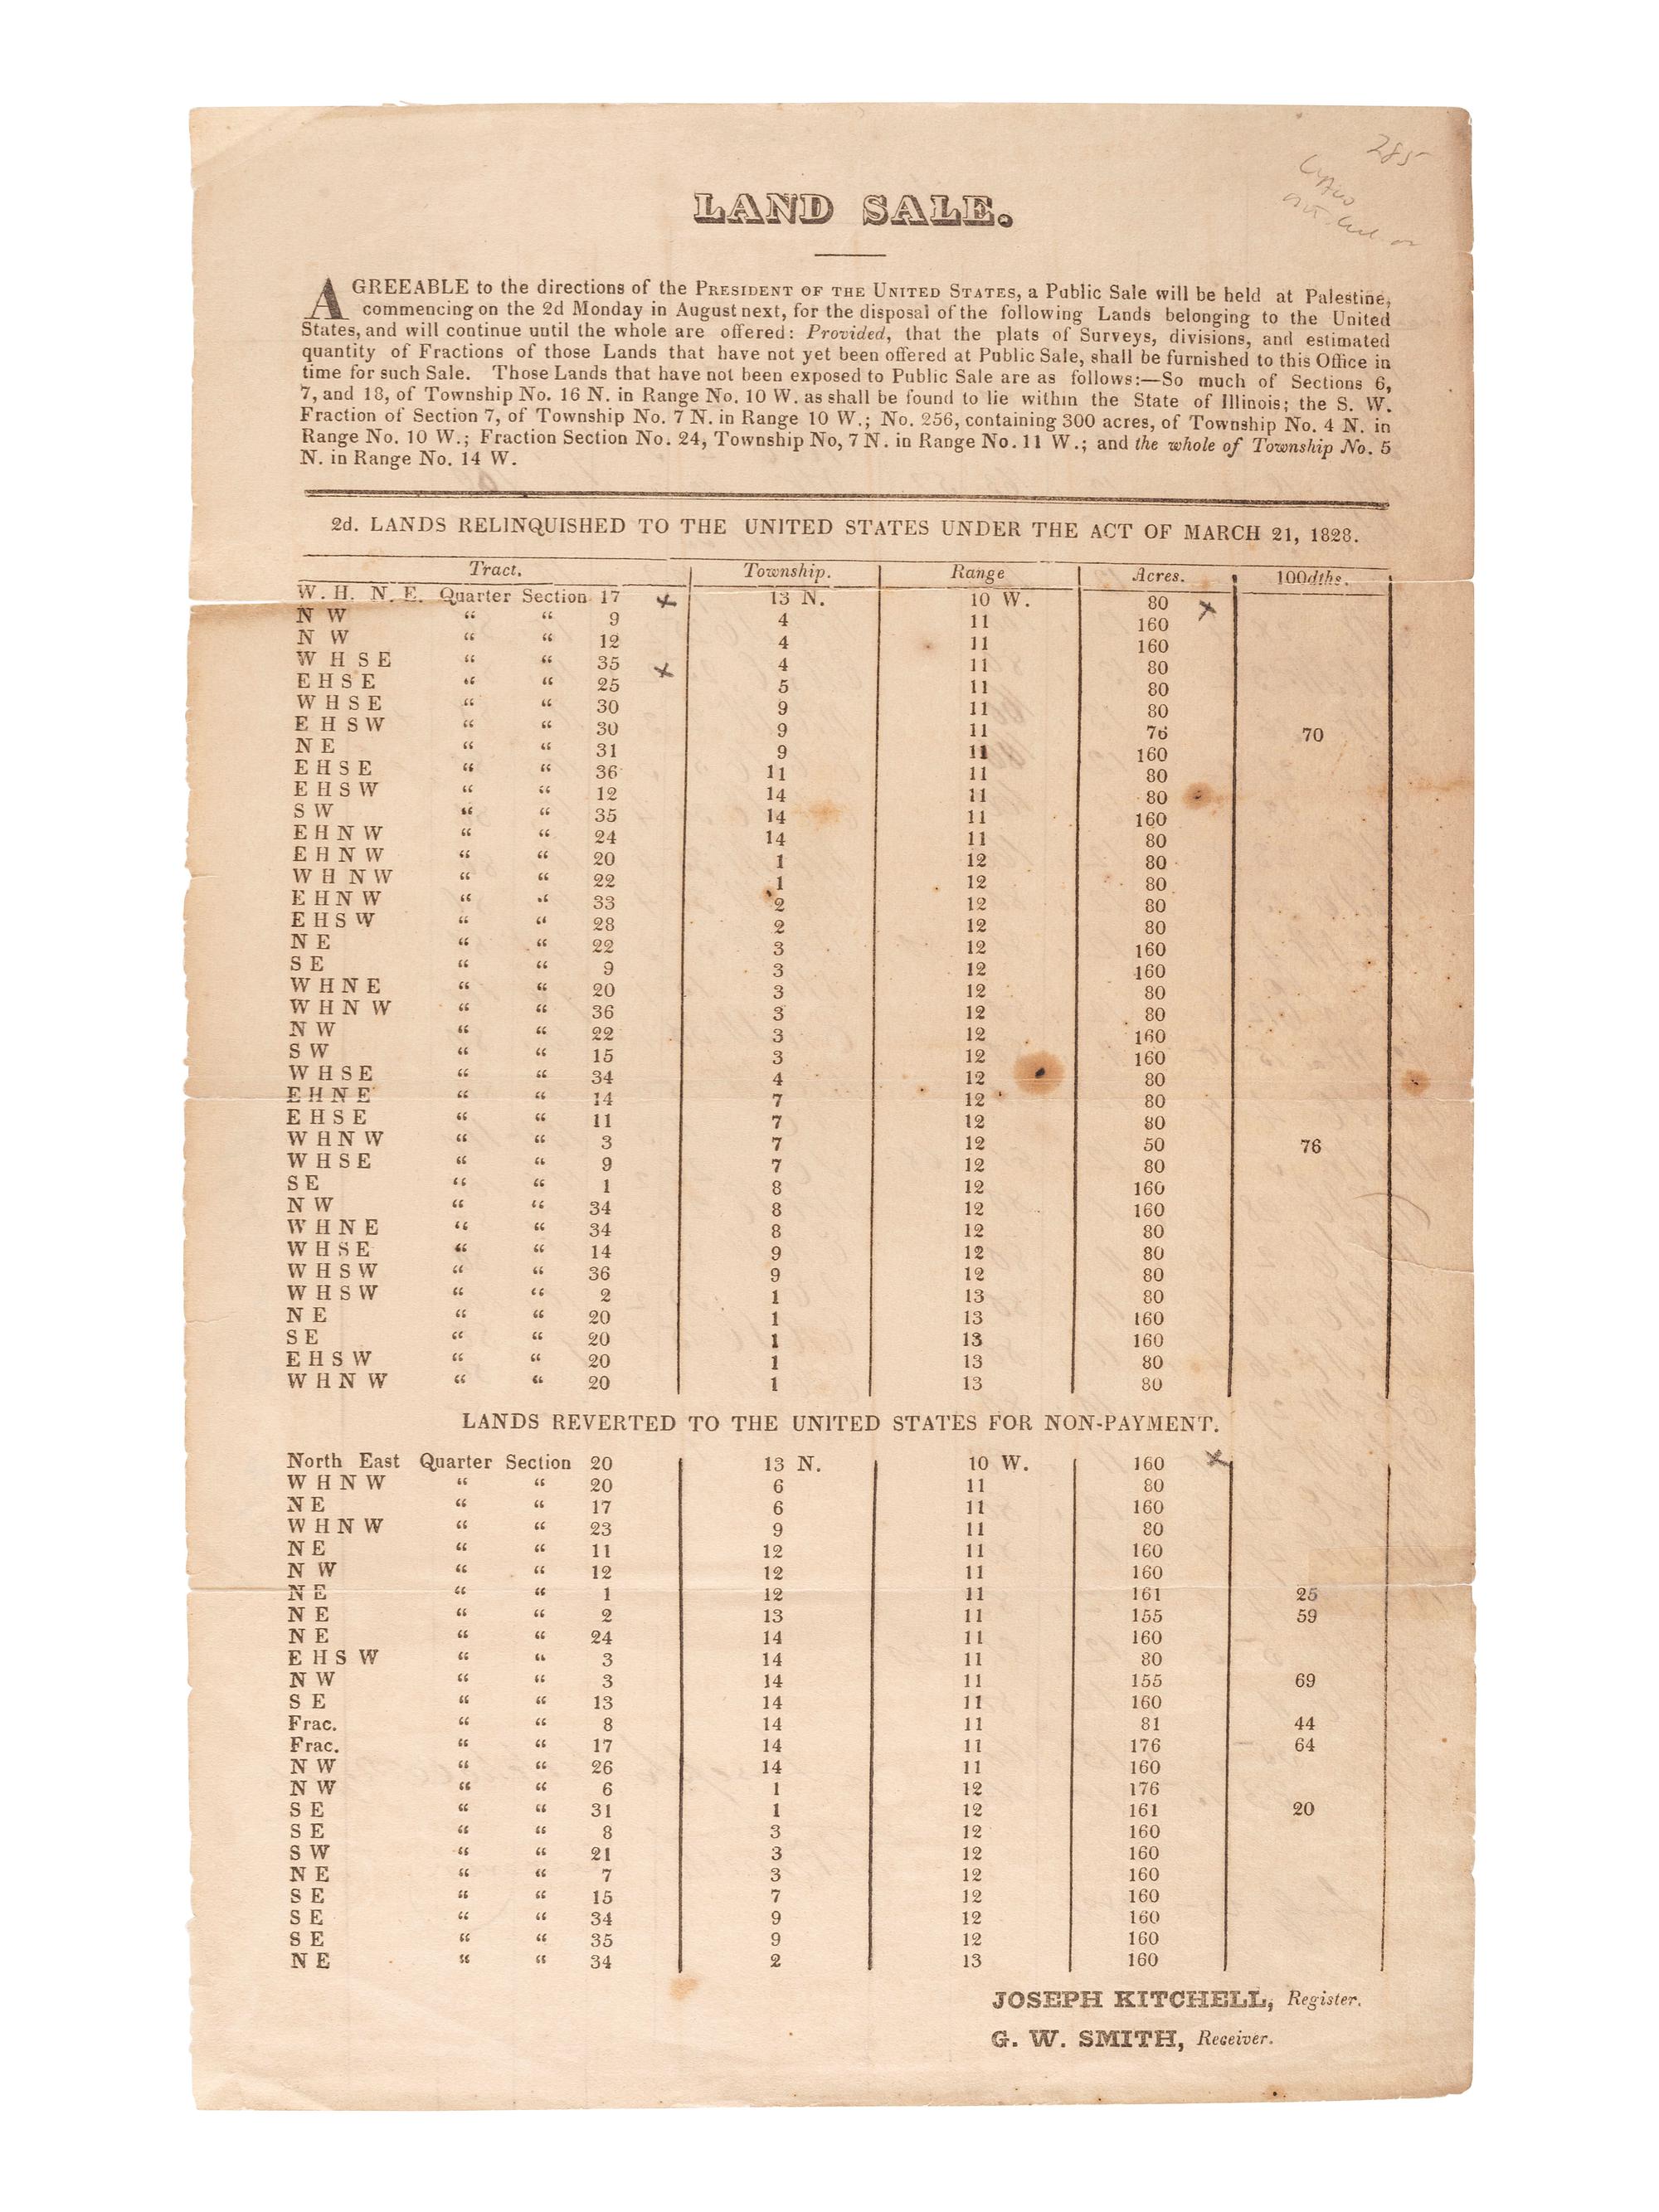 285
LAND SALE.
AGREEABLE to the directions of the PRESIDENT OF THE UNITED STATES, a Public Sale will be held at Palestine,
commencing on the 2d Monday in August next, for the disposal of the following Lands belonging to the United
States, and will continue until the whole are offered: Provided, that the plats of Surveys, divisions, and estimated
quantity of Fractions of those Lands that have not yet been offered at Public Sale, shall be furnished to this Office in
time for such Sale. Those Lands that have not been exposed to Public Sale are as follows:—So much of Sections 6,
7, and 18, of Township No. 16 N. in Range No. 10 W. as shall be found to lie within the State of Illinois; the S. W.
Fraction of Section 7, of Township No. 7 N. in Range 10 W.; No. 256, containing 300 acres, of Township No. 4 N. in
Range No. 10 W.; Fraction Section No. 24, Township No, 7 N. in Range No. 11 W.; and the whole of Township No. 5
N. in Range No. 14 W.
2d. LANDS RELINQUISHED TO THE UNITED STATES UNDER THE ACT OF MARCH 21, 1828.
Tract. Township. Range Acres. 100dths.
W. H. N. E. Quarter Section 17 x 13 N. 10 W. 80 x
N W “ “ 9 4 11 160
N W “ “ 12 4 11 160
W H S E “ “ 35 x 4 11 80
E H S E “ “ 25 5 11 80
W H S E “ “ 30 9 11 80
E H S W “ “ 30 9 11 76 70
N E “ “ 31 9 11 160
E H S E “ “ 36 11 11 80
E H S W “ “ 12 14 11 80
S W “ “ 35 14 11 160
E H N W “ “ 24 14 11 80
E H N W “ “ 20 1 12 80
W H N W “ “ 22 1 12 80
E H N W “ “ 33 2 12 80
E H S W “ “ 28 2 12 80
N E “ “ 22 3 12 160
S E “ “ 9 3 12 160
W H N E “ “ 20 3 12 80
W H N W “ “ 36 3 12 80
N W “ “ 22 3 12 160
S W “ “ 15 3 12 160
W H S E “ “ 34 4 12 80
E H N E “ “ 14 7 12 80
E H S E “ “ 11 7 12 80
W H N W “ “ 3 7 12 50 76
W H S E “ “ 9 7 12 80
S E “ “ 1 8 12 160
N W “ “ 34 8 12 160
W H N E “ “ 34 8 12 80
W H S E “ “ 14 9 12 80
W H S W “ “ 36 9 12 80
W H S W “ “ 2 1 13 80
N E “ “ 20 1 13 160
S E “ “ 20 1 13 160
E H S W “ “ 20 1 13 80
W H N W “ “ 20 1 13 80
LANDS REVERTED TO THE UNITED STATES FOR NON-PAYMENT.
North East Quarter Section 20 13 N. 10 W. 160 x
W H N W “ “ 20 6 11 80
N E “ “ 17 6 11 160
W H N W “ “ 23 9 11 80
N E “ “ 11 12 11 160
N W “ “ 12 12 11 160
N E “ “ 1 12 11 161 25
N E “ “ 2 13 11 155 59
N E “ “ 24 14 11 160
E H S W “ “ 3 14 11 80
N W “ “ 3 14 11 155 69
S E “ “ 13 14 11 160
Frac. “ “ 8 14 11 81 44
Frac. “ “ 17 14 11 176 64
N W “ “ 26 14 11 160
N W “ “ 6 1 12 176
S E “ “ 31 1 12 161 20
S E “ “ 8 3 12 160
S W “ “ 21 3 12 160
N E “ “ 7 3 12 160
S E “ “ 15 7 12 160
S E “ “ 34 9 12 160
S E “ “ 35 9 12 160
N E “ “ 34 2 13 160
JOSEPH KITCHELL, Register.
G. W. SMITH, Receiver.